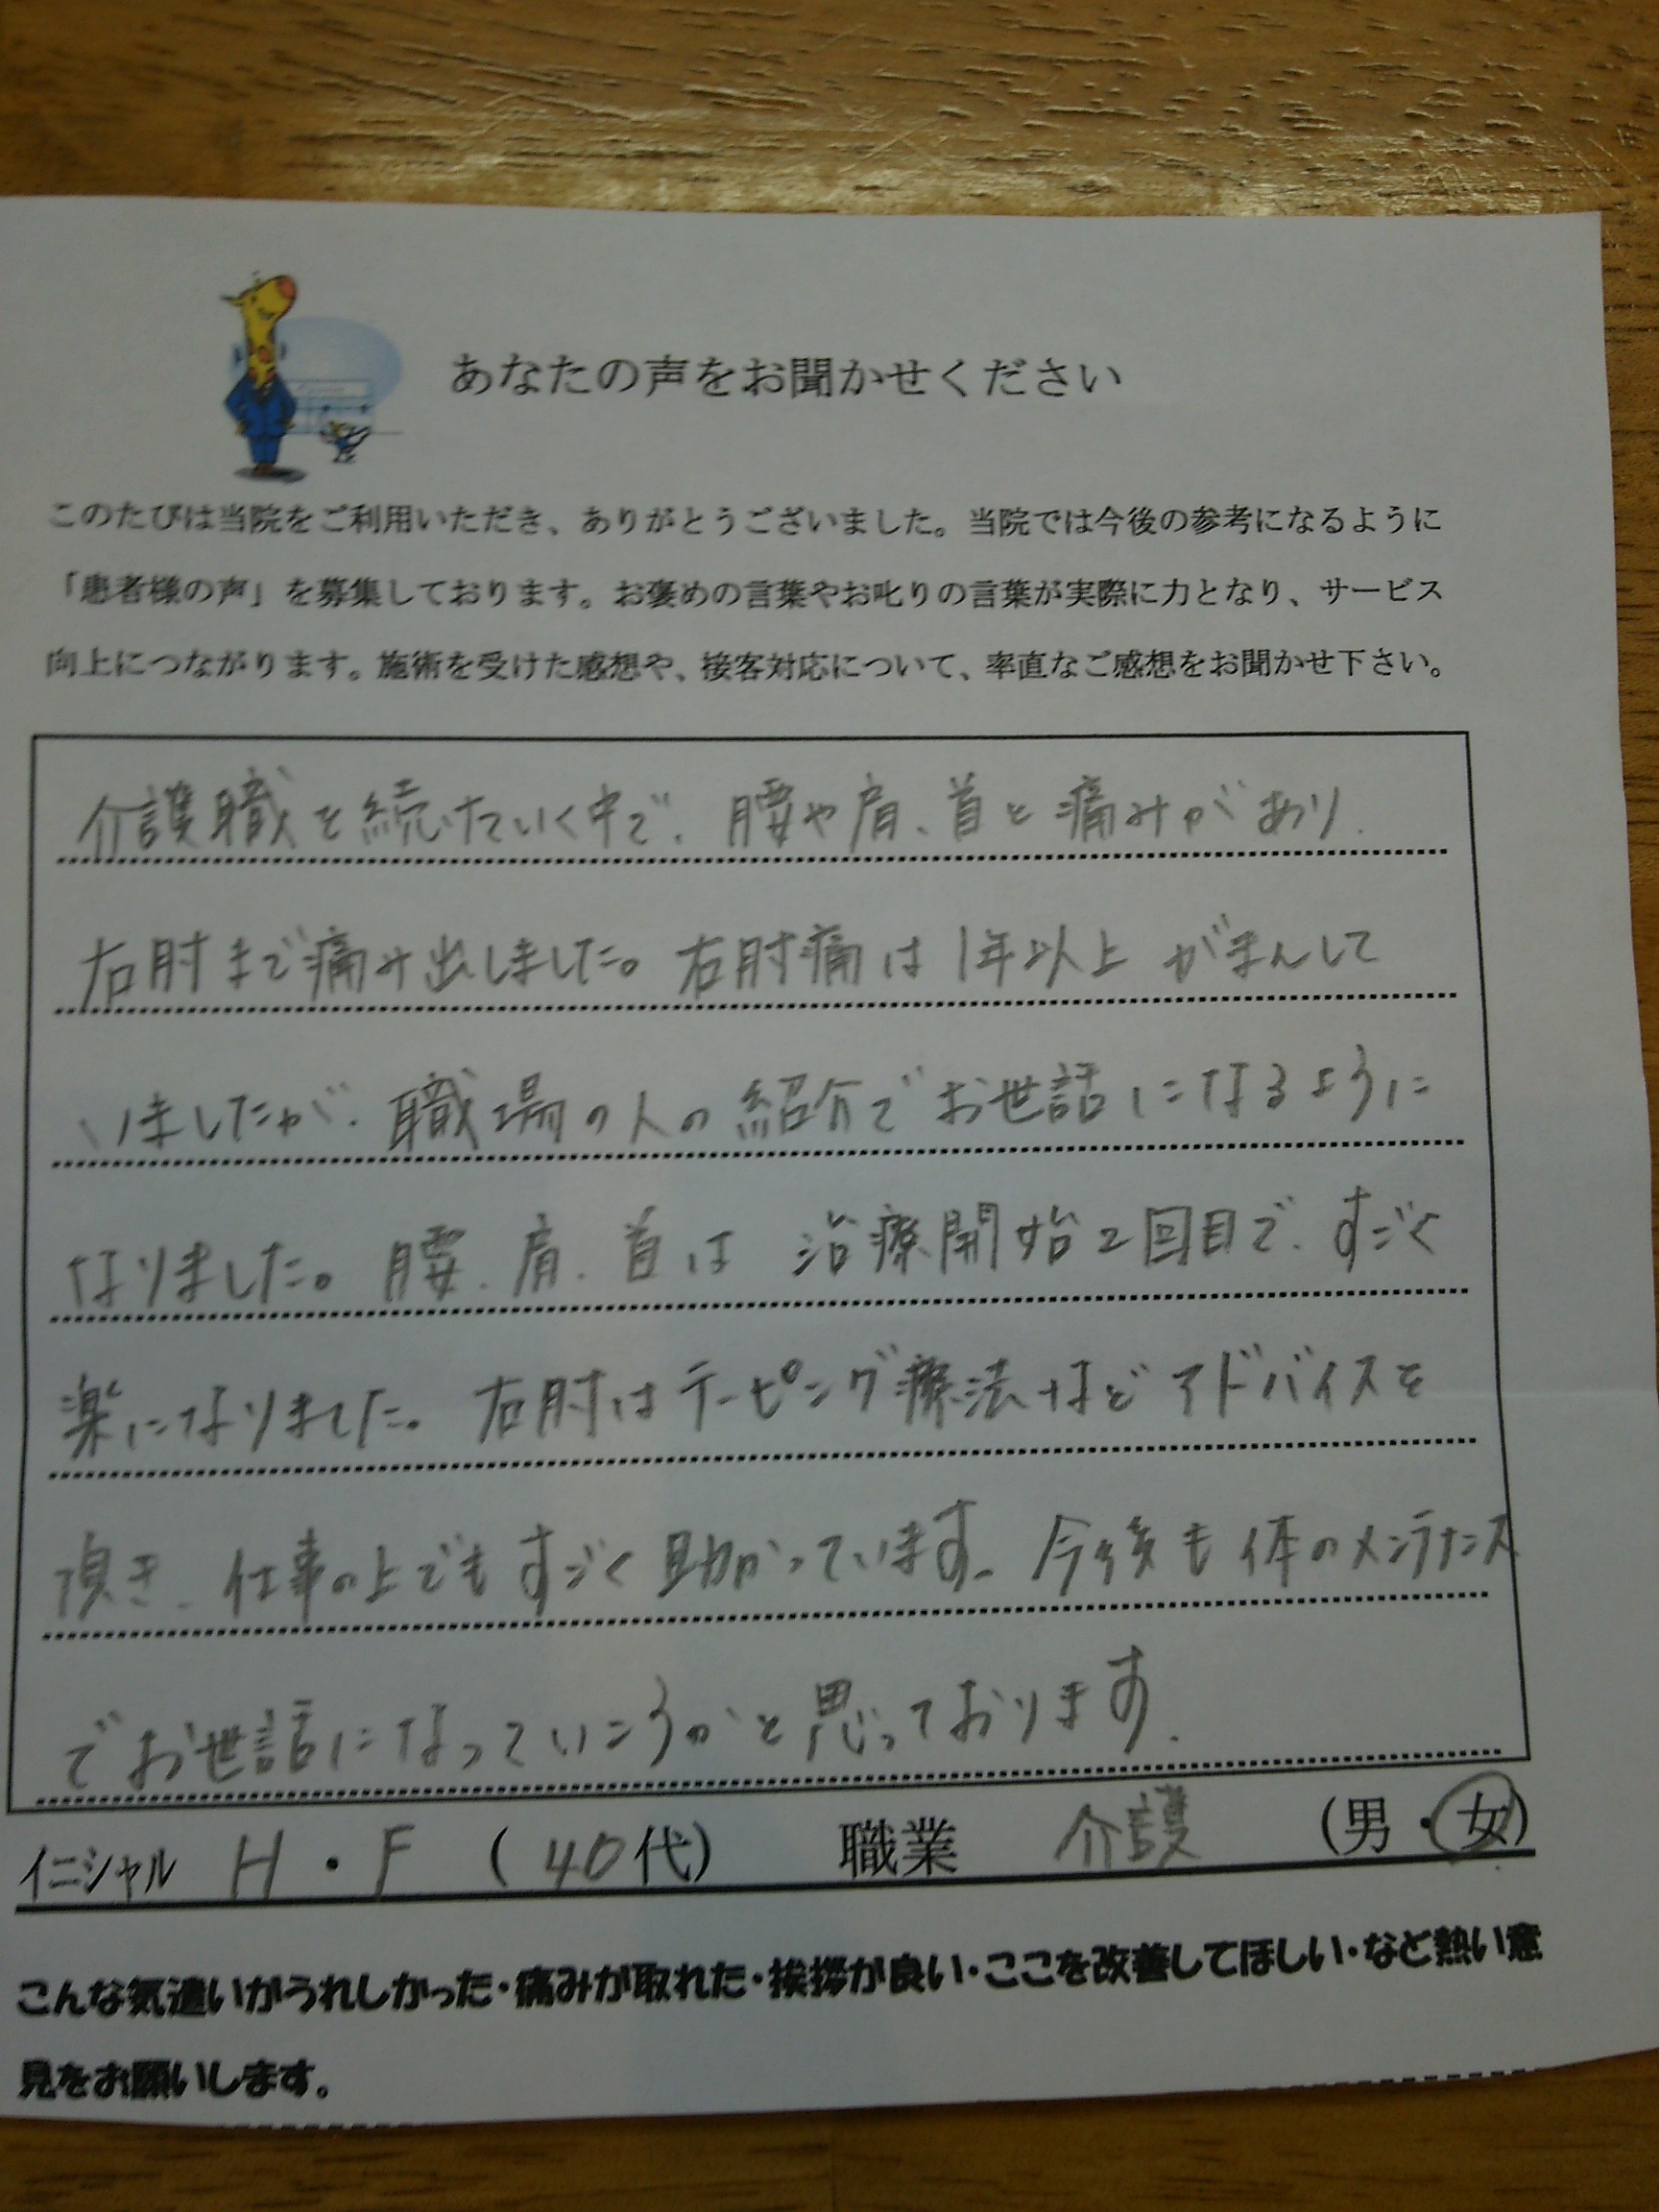 あなたの声をお聞かせください
このたびは当院をご利用いただき、ありがとうございました。当院では今後の参考になるように
「患者様の声」を募集しております。お褒めの言葉やお叱りの言葉が実際に力となり、サービス
向上につながります。施術を受けた感想や、接客対応について、率直なご感想をお聞かせ下さい。
介護職を続けていく中で、腰や肩、首と痛みがあり、
右肘まで痛み出しました。右肘痛は1年以上がまんして
いましたが、職場の人の紹介でお世話になるように
なりました。腰、肩、首は治療開始2回目で、すごく
楽になりました。右肘はテーピング療法などアドバイスを
頂き、仕事の上でもすごく助かっています。今後も体のメンテナンス
でお世話になっていこうかと思っております。
イニシャル H・F (40代) 職業 介護 (男・女)
こんな気遣いがうれしかった・痛みが取れた・挨拶が良い・ここを改善してほしい・など熱い意
見をお願いします。